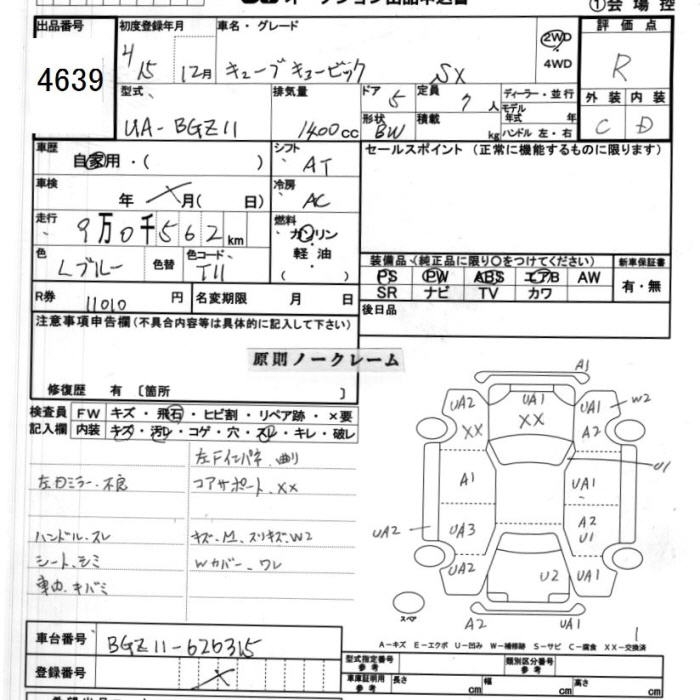 オークション出品申込書 ①会場控
出品番号 初度登録年月 車名・グレード 評価点
4639 4/15 12月 キューブ キュービック SX 2WD 4WD R
型式 排気量 ドア 5 定員 7 人 ディーラー・並行 外装 内装
UA-BGZ11 1400cc 形状 BW 積載 kg モデル年式 年 ハンドル 左・右 C D
車歴 自家用・( ) シフト AT セールスポイント (正常に機能するものに限ります)
車検 年 月( 日) 冷房 AC
走行 9万0千562km 燃料 ガソリン・軽油 ( )
色 Lブルー 色替 色コード T11 装備品 (純正品に限り○をつけてください) 新車保証書
PS PW ABS エアB AW 有・無
SR ナビ TV カワ
R券 11010 円 名変期限 月 日 後日品
注意事項申告欄(不具合内容等は具体的に記入して下さい)
原則ノークレーム
修復歴 有 〔箇所 〕
検査員記入欄 FW キズ・飛石・ヒビ割・リペア跡・×要
内装 キズ・汚レ・コゲ・穴・スレ・キレ・破レ
左Fインパネ.曲り
左右ミラー.不良 コアサポート.XX
ハンドル.スレ キズ.M.スリキズ.W2
シート.シミ Wカバー.ワレ
車内.キバミ
A1
UA2 UA1 UA1 W2
XX XX A2
U1
A1 UA1
UA2 UA3 A2 U1
UA2 U2 UA1
スペア A2 UA1
1
A-キズ E-エクボ U-凹み W-補修跡 S-サビ C-腐食 XX-交換済
車台番号 BGZ11-626315 型式指定番号 参考 類別区分番号 参考
登録番号 車庫証明用 参考 長さ cm 幅 cm 高さ cm